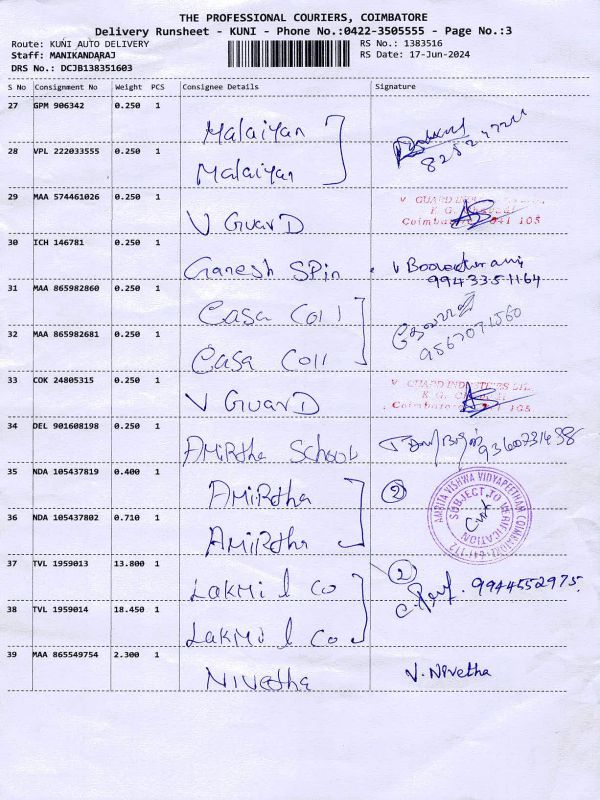 THE PROFESSIONAL COURIERS, COIMBATORE
Delivery Runsheet - KUNI - Phone No.:0422-3505555 - Page No.:3
Route: KUNI AUTO DELIVERY
RS No.: 1383516
Staff: MANIKANDARAJ
RS Date: 17-Jun-2024
DRS No.: DCJB138351603
S No Consignment No Weight PCS Consignee Details Signature
27 GPM 906342 0.250 1
Malaiyan
28 VPL 222033555 0.250 1
Malaiyan
29 MAA 574461026 0.250 1
V GuarD
30 ICH 146781 0.250 1
Ganesh SPin
9943351164
31 MAA 865982860 0.250 1
Casa Coll
32 MAA 865982681 0.250 1
Casa Coll
9567071560
33 COK 24805315 0.250 1
V GUARD INDUSTRIES LTD.
V GuarD
34 DEL 901608198 0.250 1
AMiRtha School
35 NDA 105437819 0.400 1
AMiRtha
2
36 NDA 105437802 0.710 1
AMiRtha
AMRITA VISHWA VIDYAPEETHAM COIMBATORE-641 112
SUBJECT TO VERIFICATION
37 TVL 1959013 13.800 1
LakMi l Co
2
9944552975
38 TVL 1959014 18.450 1
LakMi l Co
39 MAA 865549754 2.300 1
Nivetha
V. Nivetha